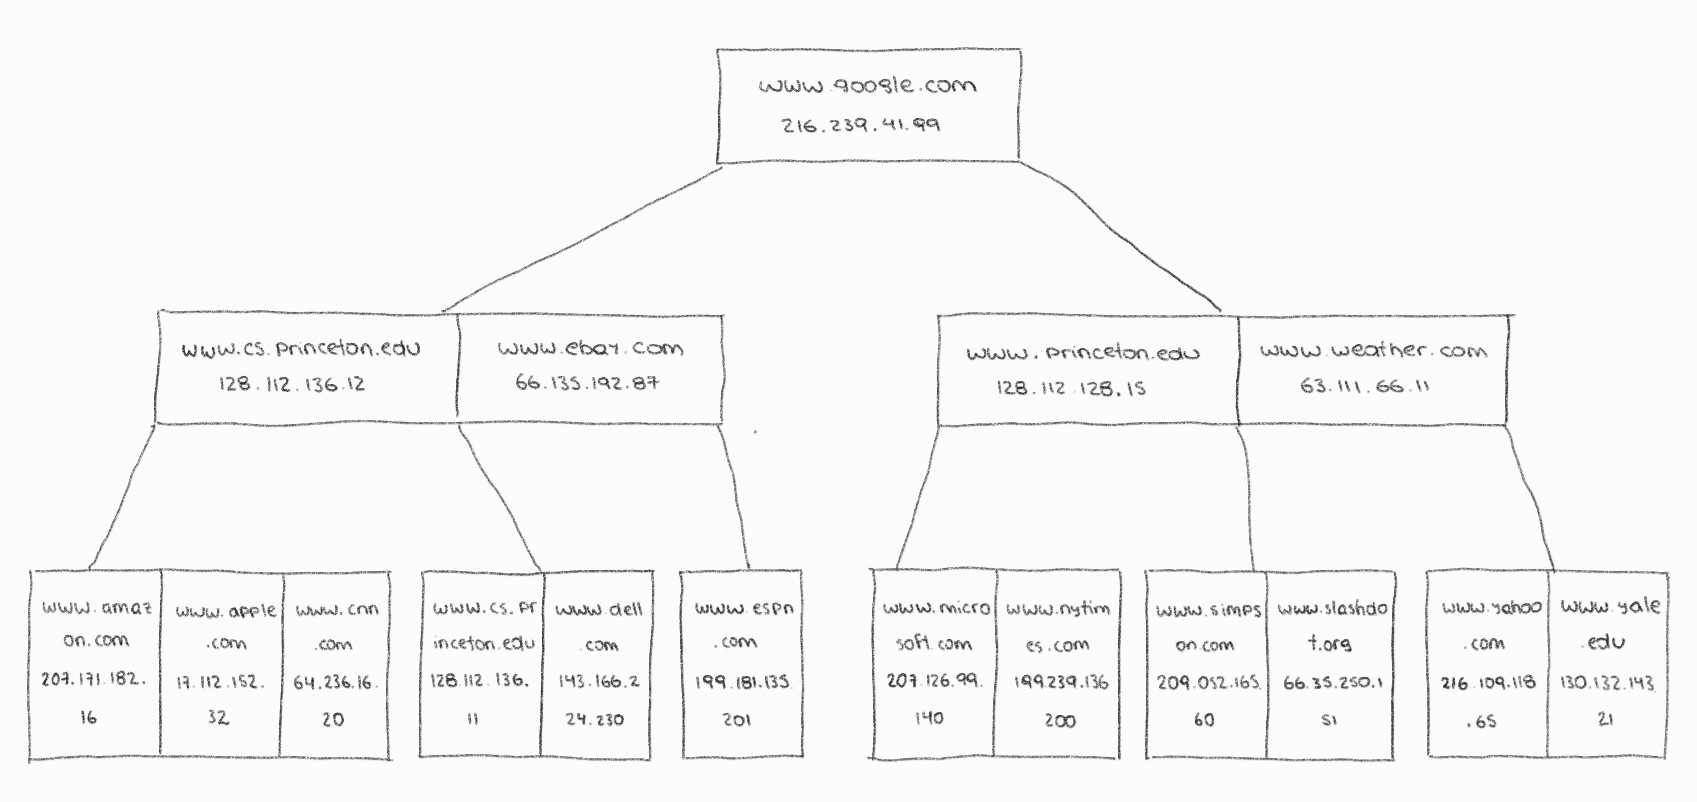 www.google.com
216.239.41.99
www.cs.princeton.edu
128.112.136.12
www.ebay.com
66.135.192.87
www.princeton.edu
128.112.128.15
www.weather.com
63.111.66.11
www.amaz
on.com
207.171.182.
16
www.apple
.com
17.112.152.
32
www.cnn
.com
64.236.16.
20
www.cs.pr
inceton.edu
128.112.136.
11
www.dell
.com
143.166.2
24.230
www.espn
.com
199.181.135.
201
www.micro
soft.com
207.126.99.
140
www.nytim
es.com
199.239.136
200
www.simps
on.com
209.052.165.
60
www.slashdo
t.org
66.35.250.1
51
www.yahoo
.com
216.109.118
.65
www.yale
.edu
130.132.143.
21